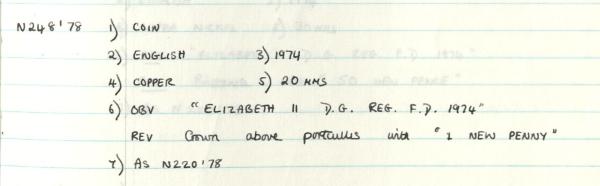 N248'78 1) COIN
2) ENGLISH 3) 1974
4) COPPER 5) 20 MMS
6) OBV "ELIZABETH II D.G. REG. F.D. 1974"
REV Crown above portcullis with "1 NEW PENNY"
7) As N220'78